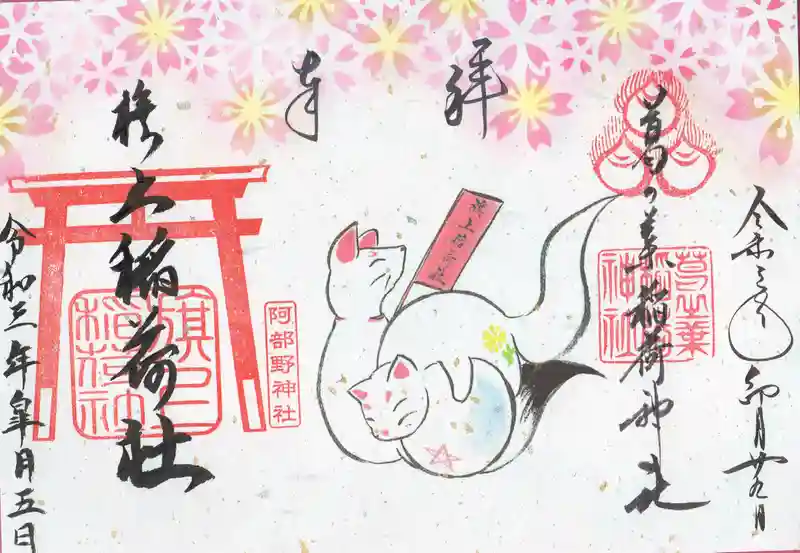 奉拝
葛の葉稲荷神社
葛之葉
稲荷
神社
卯月廿九日
旗上稲荷社
旗上稲荷社
旗上
稲荷社
阿部野神社
令和三年皐月五日